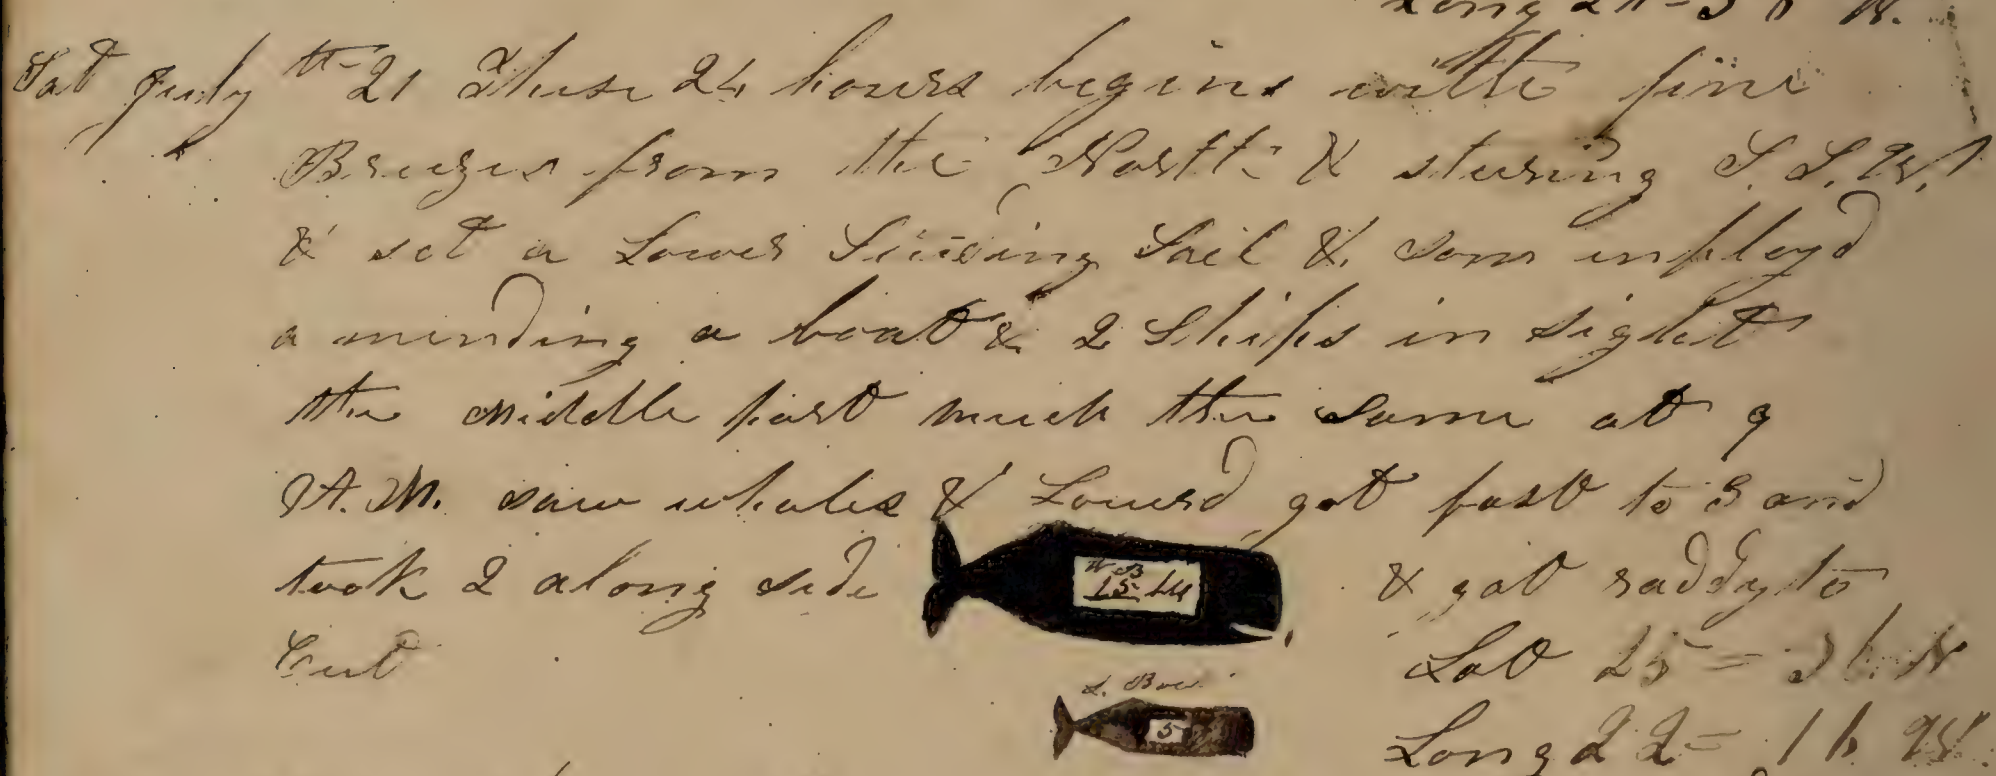 Long 21-38 W.
Sat July th 21 These 24 hours begins with fine
Breezes from the North & stering S.S.W.
& set a Lower Studing Sail & som imployd
a mending a boat & 2 Ships in sight
the middle part much the same at 9
A.M. saw whales & Lowerd got fast to 3 and
took 2 along side & got raddy to
Cut
W B
L. Bow
5
Lat 25 =
Long 22 =